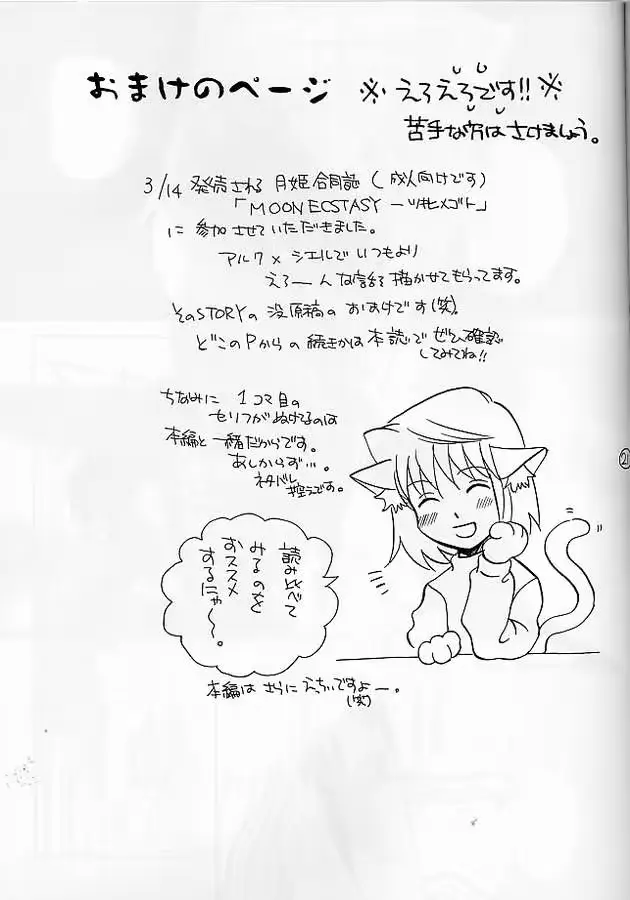 おまけのページ ※えろえろです!!※
苦手な方はさけましょう。
3/14 発売される 月姫合同誌(成人向けです)
「MOON ECSTASY ―ツキヒメゴト」
に 参加させていただきました。
アルク×シエルで いつもより
えろーんな話を描かせてもらってます。
そのSTORYの 没原稿の おまけです(笑)
どこのPからの続きかは本誌で ぜひ確認
してみてね!!
ちなみに 1コマ目の
セリフがぬけてるのは
本編と一緒だからです。
あしからず…。
ネタバレ
控えです。
読み比べて
みるのを
おススメ
するにゃ〜。
本編は さらに えっちぃですよー。
(笑)